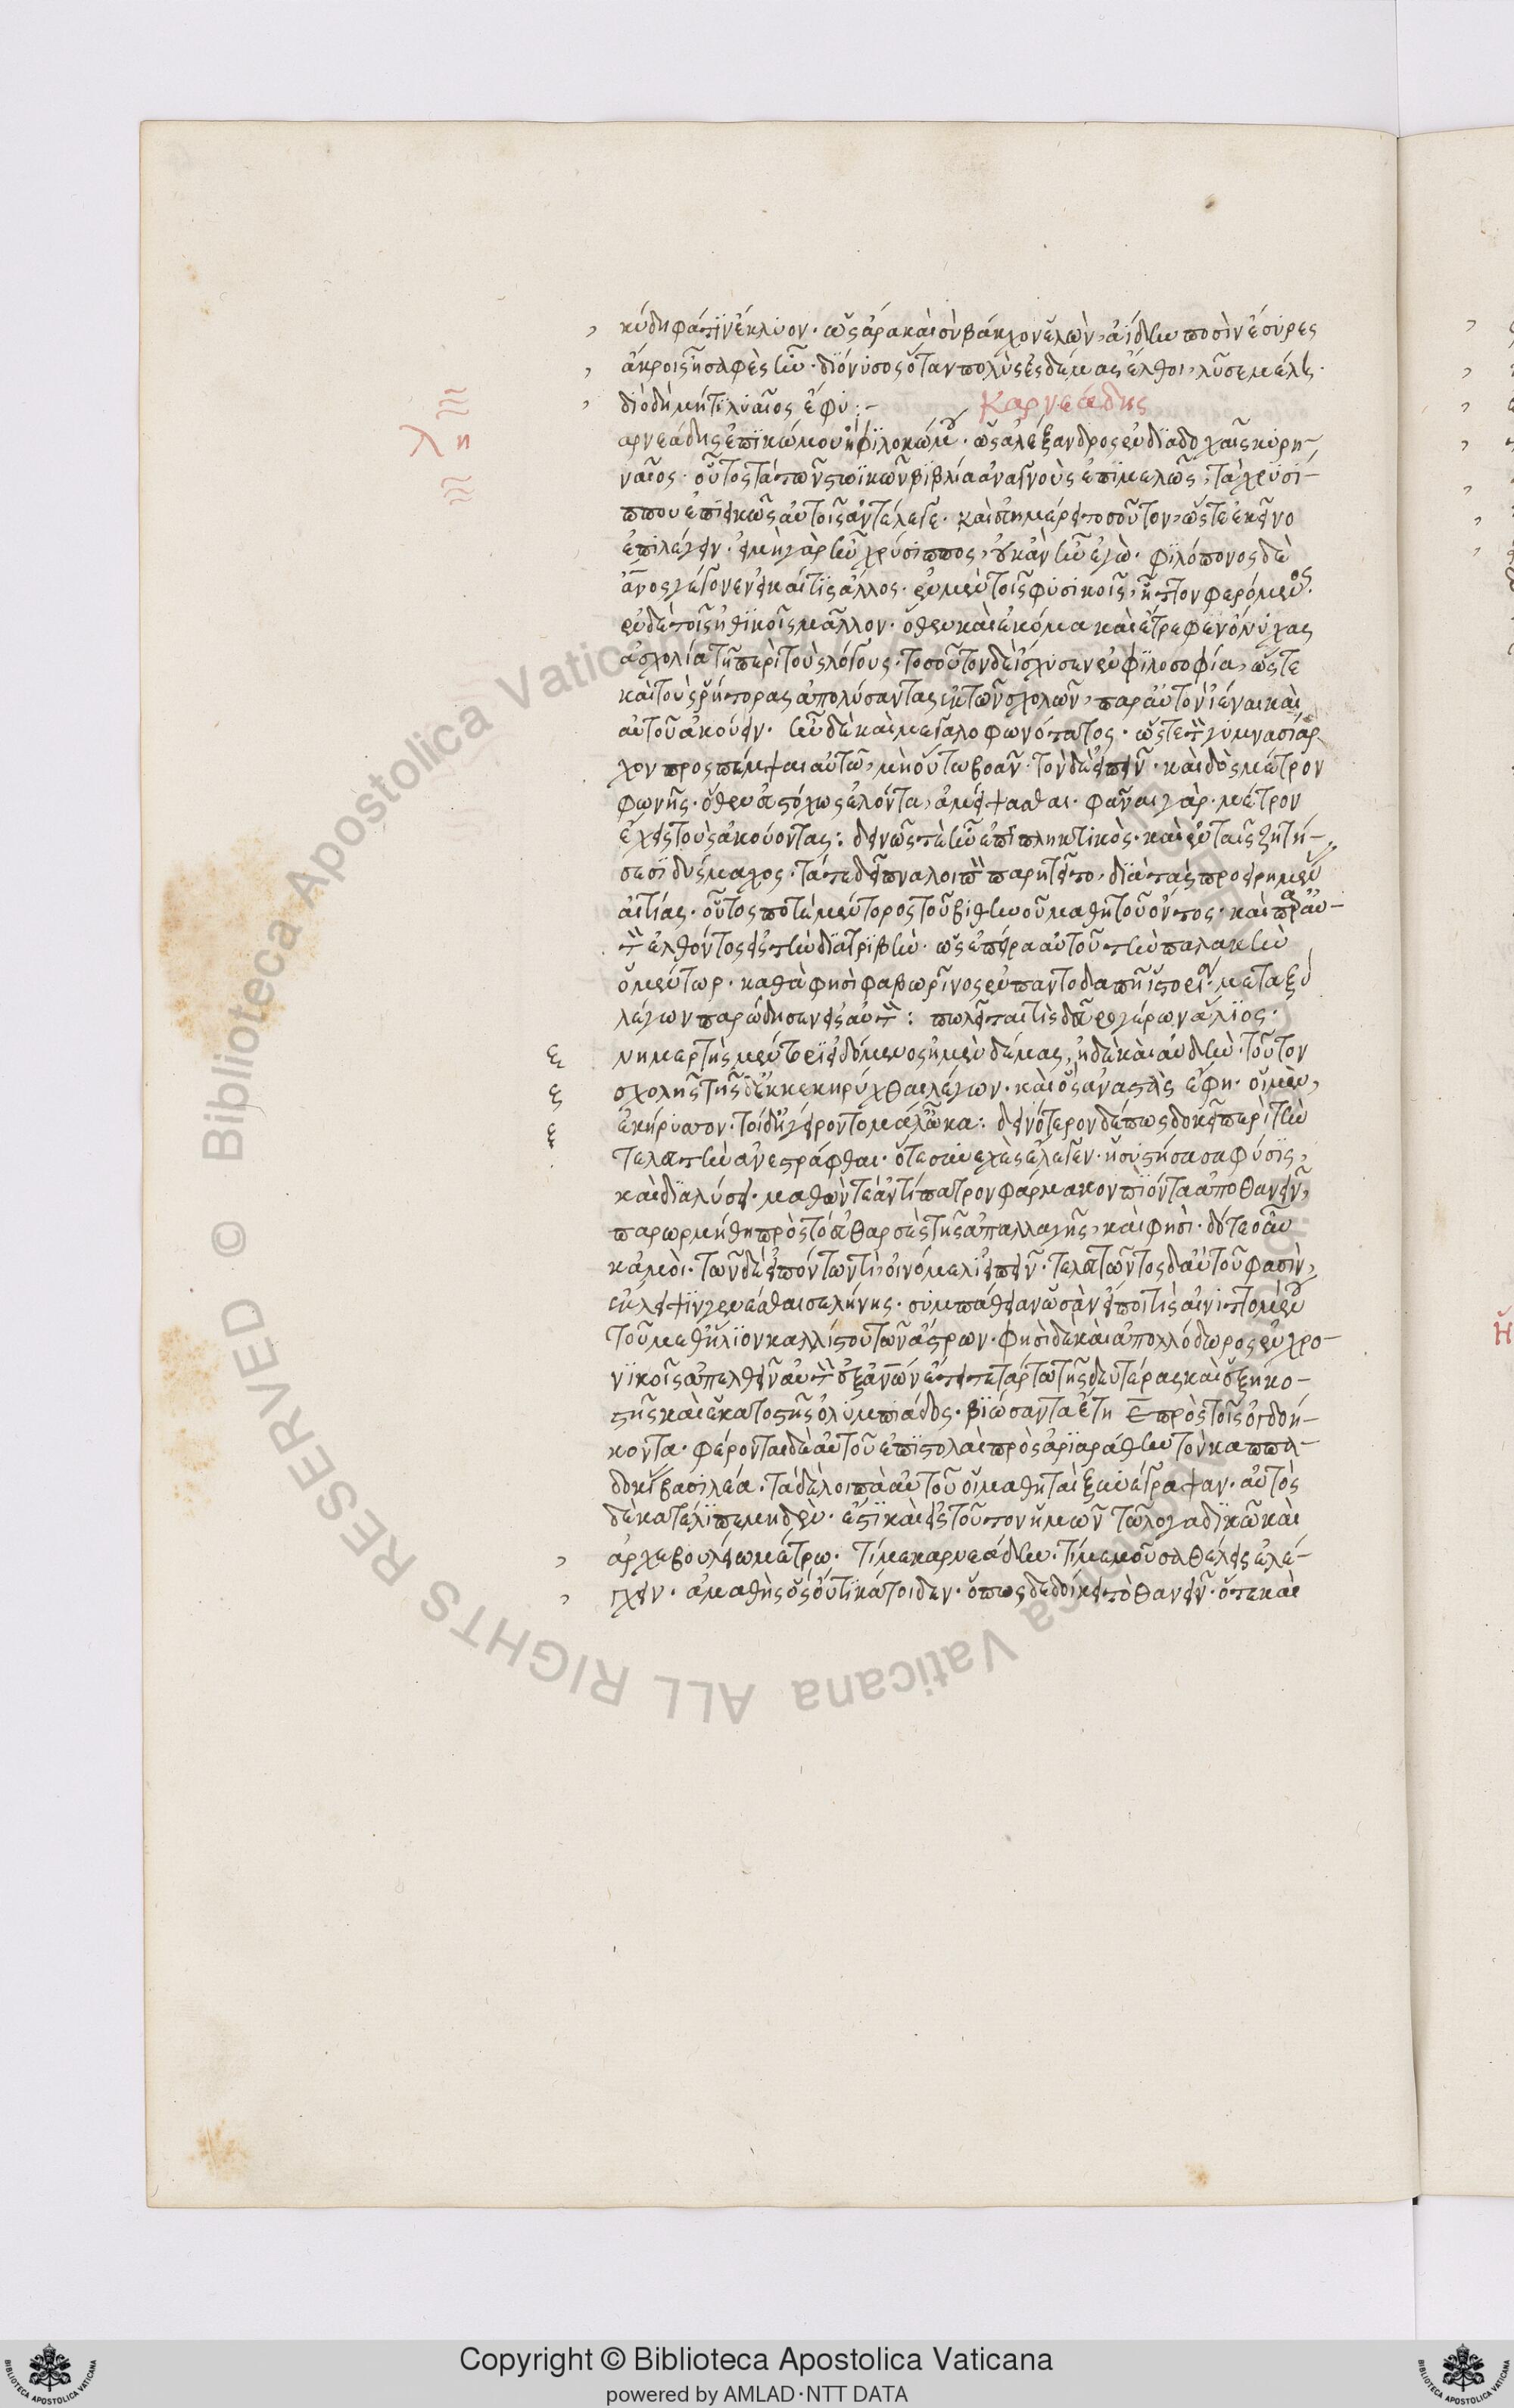 κύδη φάτιν ἔκλυον. ὡς ἄρα καὶ σὺ βάκχον ἑλὼν, ἀΐδην ποσὶν ἔσυρες
ἄκροις ἢ σαφὲς ἦν. διόνυσος ὅταν πολὺς ἐς δέμας ἔλθοι, λῦσε μέλη.
διὸ δὴ μήτι λυαῖος ἔφυ :-
Καρνεάδης
λη
αρνεάδης ἐπικώμου ἢ φιλοκώμου. ὡς ἀλέξανδρος ἐν διαδοχαῖς κυρη-
ναῖος. οὗτος τὰ τῶν στωϊκῶν βιβλία ἀναγνοὺς ἐπιμελῶς, τὰ χρυσί-
ππου ἐπιεικῶς αὐτοῖς ἀντέλεγε. καὶ εὐημέρει τοσοῦτον, ὥστε ἐκεῖνο
ἐπιλέγειν. εἰ μὴ γὰρ ἦν χρύσιππος, οὐκ ἂν ἦν ἐγώ. φιλόπονος δὲ
ἄνος γέγονεν εἰ καί τις ἄλλος. ἐν μὲν τοῖς φυσικοῖς, ἧττον φερόμενος.
ἐν δὲ τοῖς ἠθικοῖς μᾶλλον. ὅθεν καὶ ἐκόμα καὶ ἔτρεφεν ὄνυχας
ἀσχολία τῇ περὶ τοὺς λόγους. τοσοῦτον δὲ ἴσχυσεν ἐν φιλοσοφία, ὥστε
καὶ τοὺς ῥήτορας ἀπολύσαντας ἐκ τῶν σχολῶν, παρ αὐτὸν ἰέναι καὶ
αὐτοῦ ἀκούειν. ἦν δὲ καὶ μεγαλοφωνότατος. ὥστε τὸν γυμνασίαρ-
χον προσπέμψαι αὐτῶ, μὴ οὕτω βοᾶν. τὸν δὲ εἰπεῖν. καὶ δὸς μέτρον
φωνῆς. ὅθεν εὐστόχως ἑλόντα, ἀμείψασθαι. φάναι γὰρ. μέτρον
ἔχεις τοὺς ἀκούοντας: δεινῶς τὲ ἦν ἐπιπληκτικὸς. καὶ ἐν ταῖς ζητή-
σεσι δύσμαχος. τά τε δεῖπνα λοιπὸν παρῃτεῖτο, διὰ τὰς προειρημένας
αἰτίας. οὗτός ποτε μέντορος τοῦ βιθυνοῦ μαθητοῦ ὄντος. καὶ παρ αὐ-
τὸν ἐλθόντος εἰς τὴν διατριβὴν. ὡς ἐπείρα αὐτοῦ τὴν παλακὴν
ὁ μέντωρ. καθὰ φησὶ φαβωρῖνος ἐν παντοδαπῇ ἱστορία. μεταξὺ
λέγων παρώδησεν εἰς αὐτὸν: πωλεῖταί τις δεῦρο γέρων ἅλιος.
νημερτὴς μέντορι εἰδόμενος ἠμὲν δέμας, ἠδὲ καὶ αὐδήν. τοῦτον
σχολῆς τῆσδ ἐκκεκηρύχθαι λέγων. καὶ ὃς ἀναστὰς ἔφη. οἱ μὲν,
ἐκήρυσσον. τοὶ δ ἠγείροντο μάλ ὦκα: δεινότερον δέ πως δοκεῖ περὶ τὴν
τελευτὴν ἀνεστράφθαι. ὅτε συνεχὲς ἔλεγεν. ἡ συστήσασα φύσις,
καὶ διαλύσει. μαθών τε ἀντίπατρον φάρμακον πιόντα ἀποθανεῖν,
παρωρμήθη πρὸς τὸ εὐθαρσὲς τῆς ἀπαλλαγῆς, καὶ φησὶ. δότε οὖν
κἀμοὶ. τῶν δὲ εἰπόντων τί, οἰνόμελι εἰπεῖν. τελευτῶντος δ αὐτοῦ φασὶν,
ἔκλειψιν γενέσθαι σελήνης. συμπάθειαν ὡς ἂν εἴποι τὶς αἰνιττομένου
τοῦ μεθ ἥλιον καλλίστου τῶν ἄστρων. φησὶ δὲ καὶ ἀπολλόδωρος ἐν χρο-
νικοῖς ἀπελθεῖν αὐτὸν ἐξ ἀνῶν ἔτει τετάρτω τῆς δευτέρας καὶ ἑξηκο-
στῆς καὶ ἑκατοστῆς ὀλυμπιάδος. βιώσαντα ἔτη ε πρὸς τοῖς ὀγδοή-
κοντα. φέρονται δὲ αὐτοῦ ἐπιστολαὶ πρὸς ἀριαράθην τὸν καππα-
δοκίας βασιλέα. τὰ δὲ λοιπὰ αὐτοῦ οἱ μαθηταὶ ξυνέγραψαν. αὐτὸς
δὲ κατέλιπε μηδέν. ἔστι καὶ εἰς τοῦτον ἡμῶν τῶ λογαδικῶ καὶ
ἀρχεβουλείω μέτρω. τί με καρνεάδην. τί με μοῦσα θέλεις ἐλέ-
γχειν. ἀμαθὴς ὃς οὔτι κάτοιδεν. ὅπως δεδοίκει τὸ θανεῖν. ὅτε καὶ
Copyright © Biblioteca Apostolica Vaticana
powered by AMLAD·NTT DATA